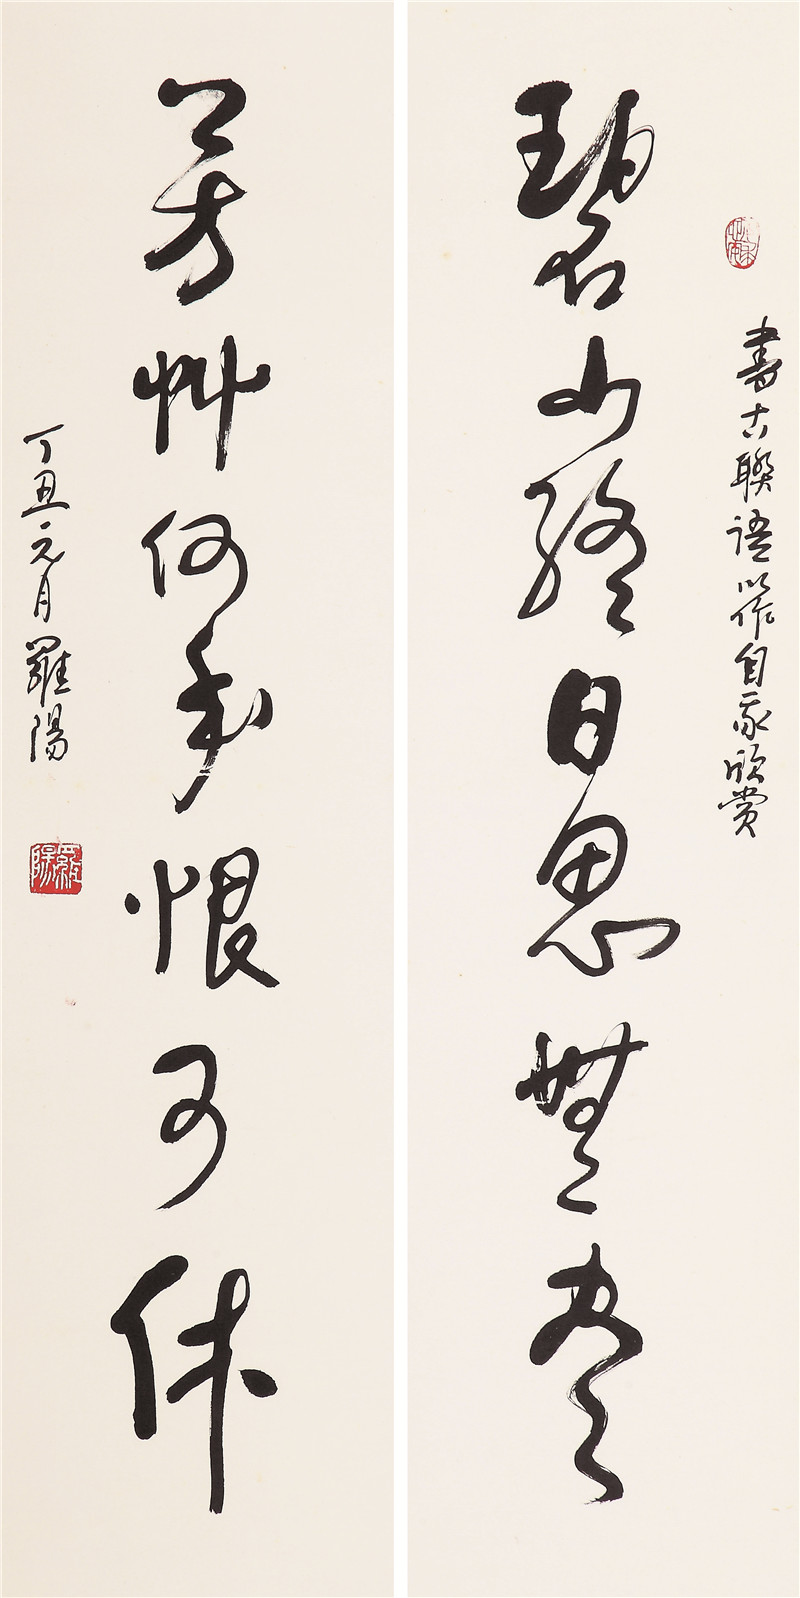 書古聯語以作自家欣賞
碧山終日思無尽
芳草何年恨可休
丁丑元月羅陽
羅陽